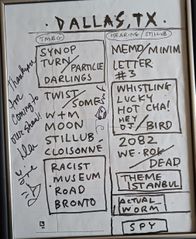 DALLAS, TX
SYNOP
TURN / PARTICLE
DARLINGS
TWIST / SOME
W+M
MOON
STILLUB
CLOISONNE
RACIST
MUSEUM
ROAD
BRONTO
MEMO / MINIM
LETTER
#3
WHISTLING
LUCKY
HOT CHA!
HEY / BIRD
DJ
2082
WE-RON / DEAD
THEME
ISTANBUL
ACTUAL
WORM
SPY
Thank you
for
coming to
our show!